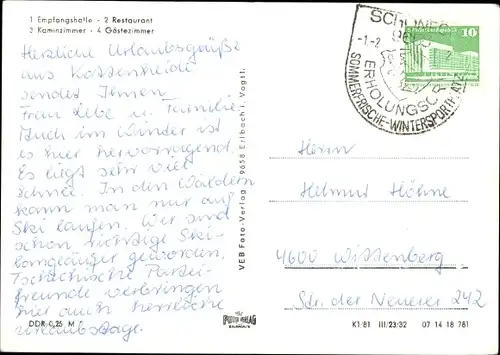 1 Empfangshalle - 2 Restaurant
3 Kaminzimmer - 4 Gästezimmer
Herzliche Urlaubsgrüße
aus Kottenheide
sendet Ihnen
Frau Lebe u. Familie.
Auch im Winter ist
es hier hervorragend.
Es liegt sehr viel
Schnee. In den Wäldern
kann man nur auf
Ski laufen. Wir sind
schon richtige Ski-
langläufer geworden.
Tschechische Partei-
freunde verbringen
hier auch herrliche
Urlaubstage.
DDR 0,25 M
VEB Foto-Verlag 9658 Erlbach i. Vogtl.
FOTO VERLAG
ERLBACH/V.
SCHÖNECK
-1.-2
ERHOLUNGSORT
SOMMERFRISCHE-WINTERSPORTPLATZ
10
Herrn
Helmut Höhne
4600 Wittenberg
Str. der Neuerer 242
K1/81 III/23/32 07 14 18 781